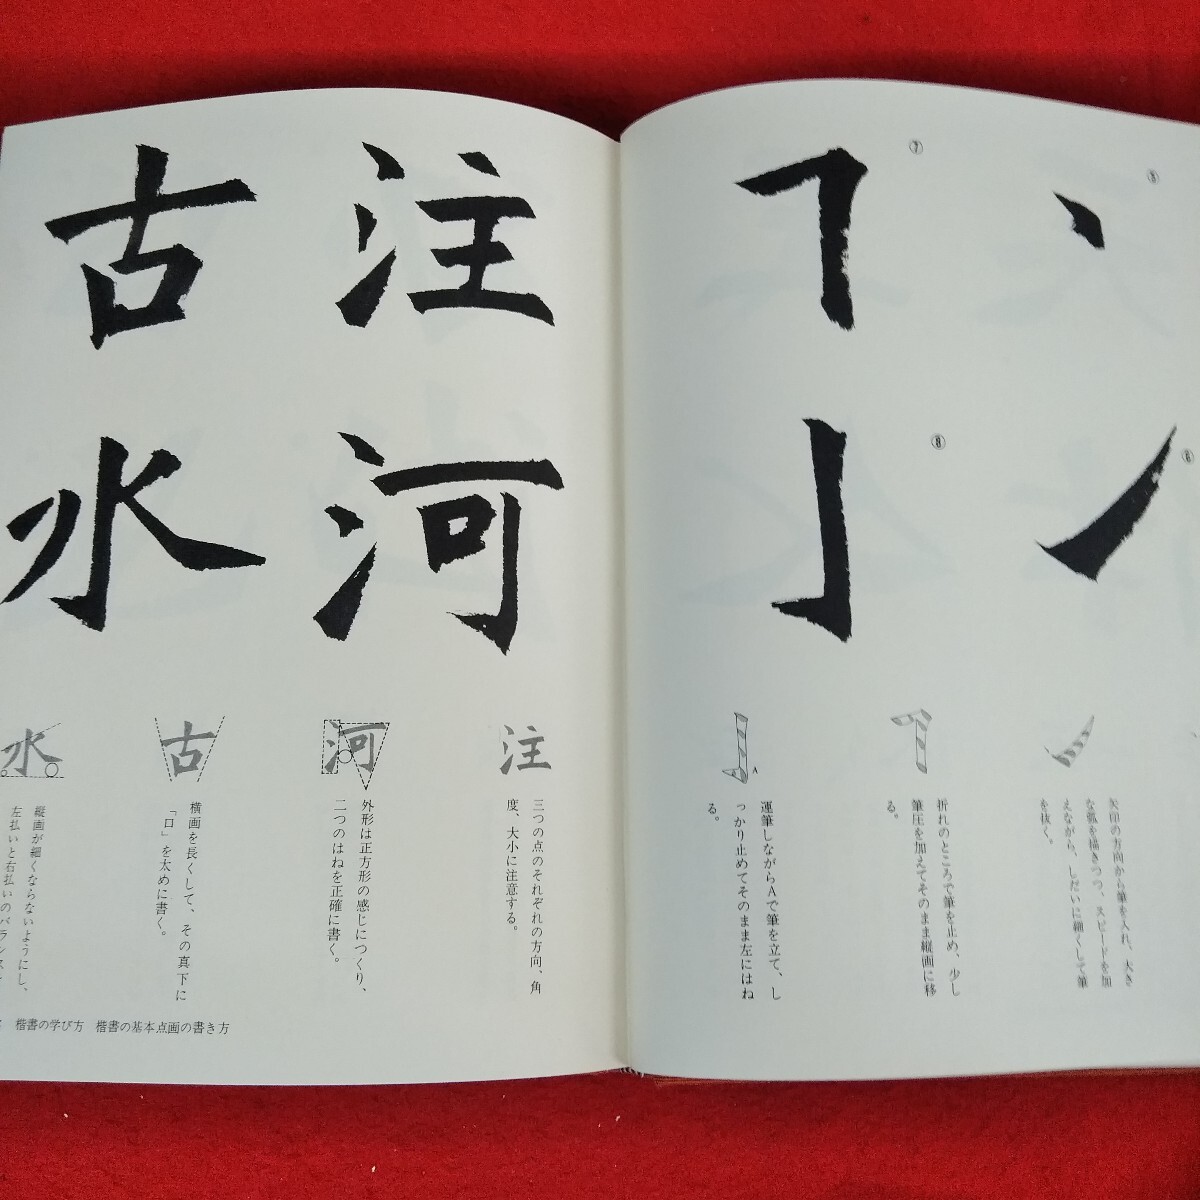 ⑤
⑥
⑦
⑧
矢印の方向から筆を入れ、大き
な弧を描きつつ、スピードを加
えながら、しだいに細くして筆
を抜く。
折れのところで筆を止め、少し
筆圧を加えてそのまま縦画に移
る。
A
運筆しながらAで筆を立て、し
っかり止めてそのまま左にはね
る。
注
河
古
水
注
三つの点のそれぞれの方向、角
度、大小に注意する。
河
外形は正方形の感じにつくり、
二つのはねを正確に書く。
古
横画を長くして、その真下に
「口」を太めに書く。
水
縦画が細くならないようにし、
左払いと右払いのバランス
楷書の学び方 楷書の基本点画の書き方